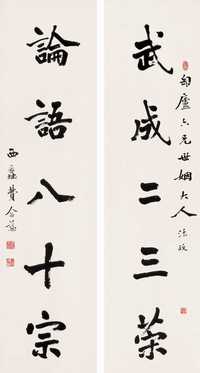 匋廬六兄世姻大人
武成二三策
論語八十宗
西蠡費念慈